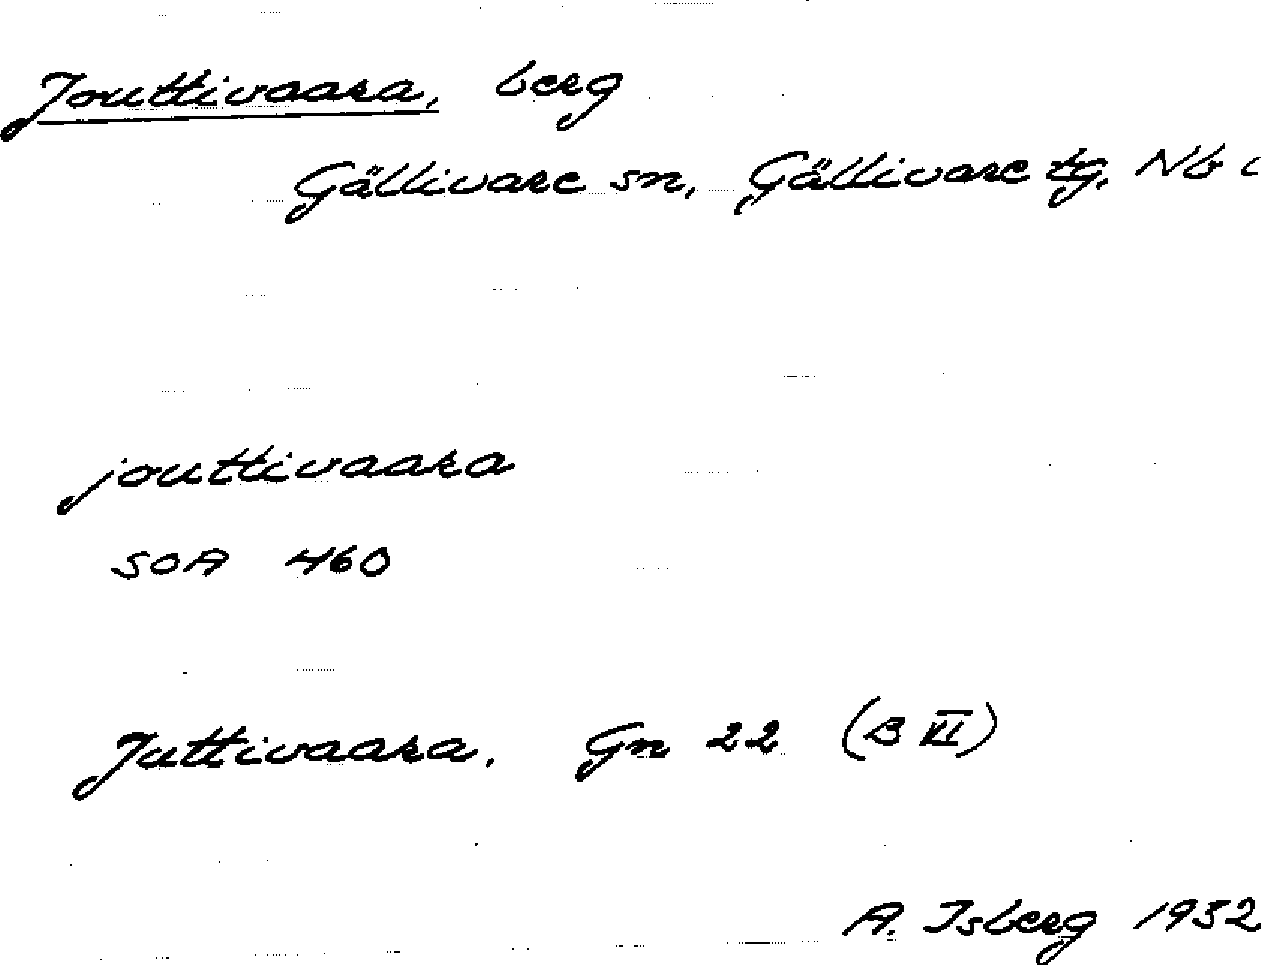 Jouttivaara, berg
Gällivare sn, Gällivare tg, Nb
jouttivaara
SOA 460
Juttivaara. Gn 22 (B XI)
A. Isberg 1932